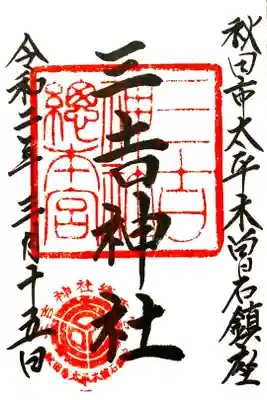 秋田市太平木曽石鎮座
三吉神社
令和二年三月十五日
三吉
總本宮